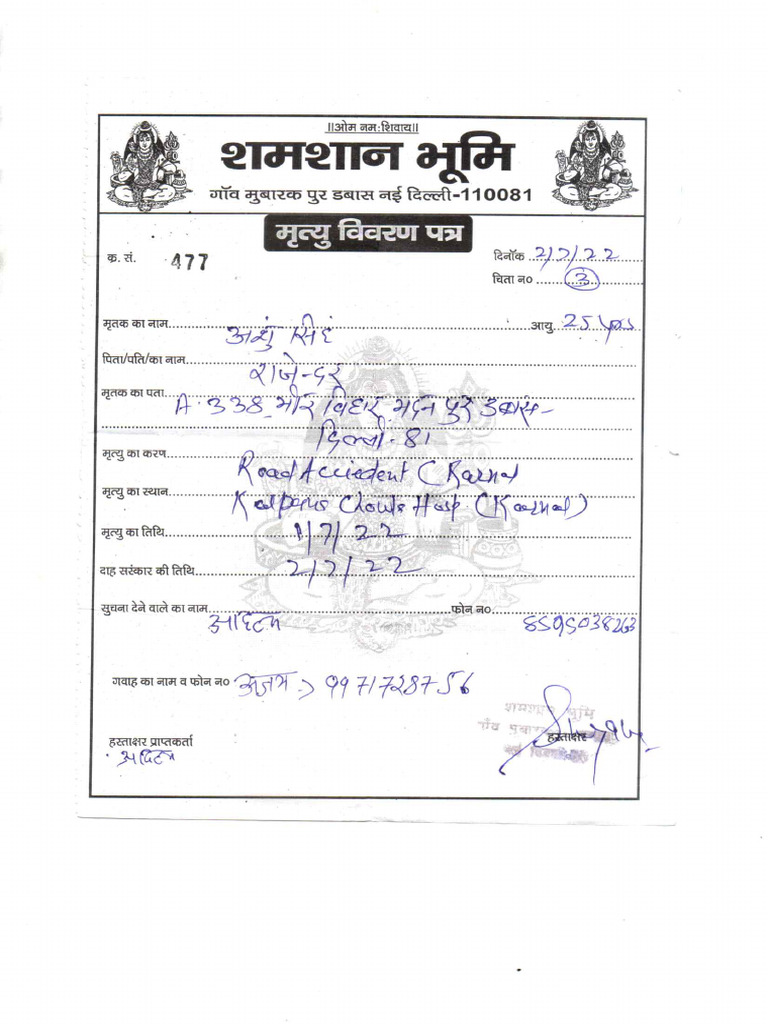 ||ओम नमःशिवाय||
शमशान भूमि
गाँव मुबारक पुर डबास नई दिल्ली-110081
मृत्यु विवरण पत्र
क्र. सं. 477
दिनाँक 2/7/22
चिता न० 3
मृतक का नाम अंशु सिंह आयु 25 yrs
पिता/पति/का नाम राजेन्दर
मृतक का पता A-338 मीर विहार मदन पुर डबास-
दिल्ली-81
मृत्यु का करण Road Acciedent (Karnal
मृत्यु का स्थान Kalpana Chowla Hosp (Karnal)
मृत्यु का तिथि 1/7/22
दाह सरंकार की तिथि 2/7/22
सुचना देने वाले का नाम आदित्य फोन न० 8595038263
गवाह का नाम व फोन न० अजय -> 9971728756
शमशान भूमि
गाँव मुबारक
हस्ताक्षर प्राप्तकर्ता हस्ताक्षर
आदित्य